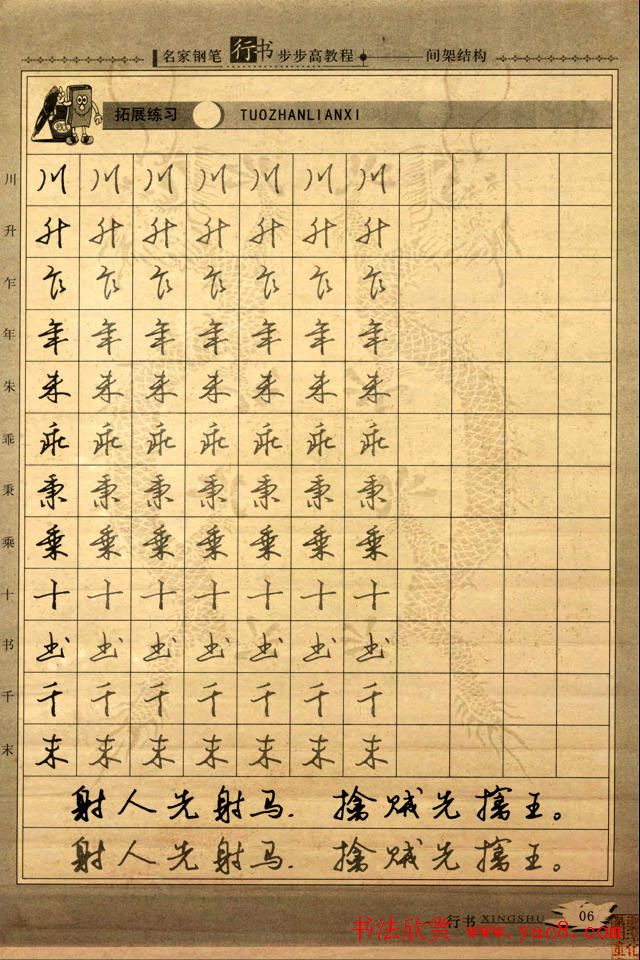 名家钢笔行书步步高教程 间架结构
拓展练习 TUOZHANLIANXI
川 川 川 川 川 川 川 川
升 升 升 升 升 升 升 升
乍 乍 乍 乍 乍 乍 乍 乍
年 年 年 年 年 年 年 年
朱 朱 朱 朱 朱 朱 朱 朱
乖 乖 乖 乖 乖 乖 乖 乖
秉 秉 秉 秉 秉 秉 秉 秉
乘 乘 乘 乘 乘 乘 乘 乘
十 十 十 十 十 十 十 十
书 书 书 书 书 书 书 书
千 千 千 千 千 千 千 千
末 末 末 末 末 末 末 末
射人先射马，擒贼先擒王。
射人先射马，擒贼先擒王。
行书 XINGSHU 06
书法欣赏 www.yac8.com